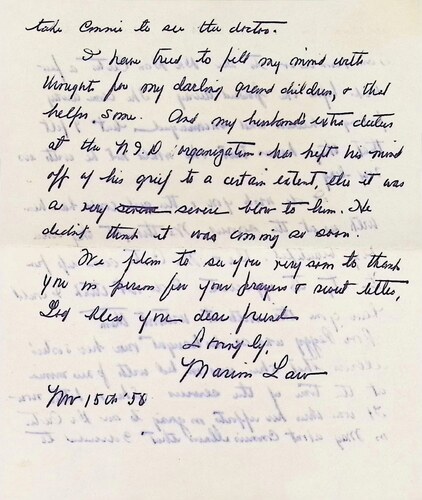 take Connie to see the doctor.
I have tried to fill my mind with
thoughts for my darling grand children, & that
helps some. And my husband's extra duties
at the organization has kept his mind
off of his grief to a certain extent, tho it was
a very severe severe blow to him. He
didn't think it was coming so soon.
We plan to see you very soon to thank
you in person for your prayers & sweet letter.
God bless you dear friend
Lovingly,
Marion Laws
Nov 15th '58